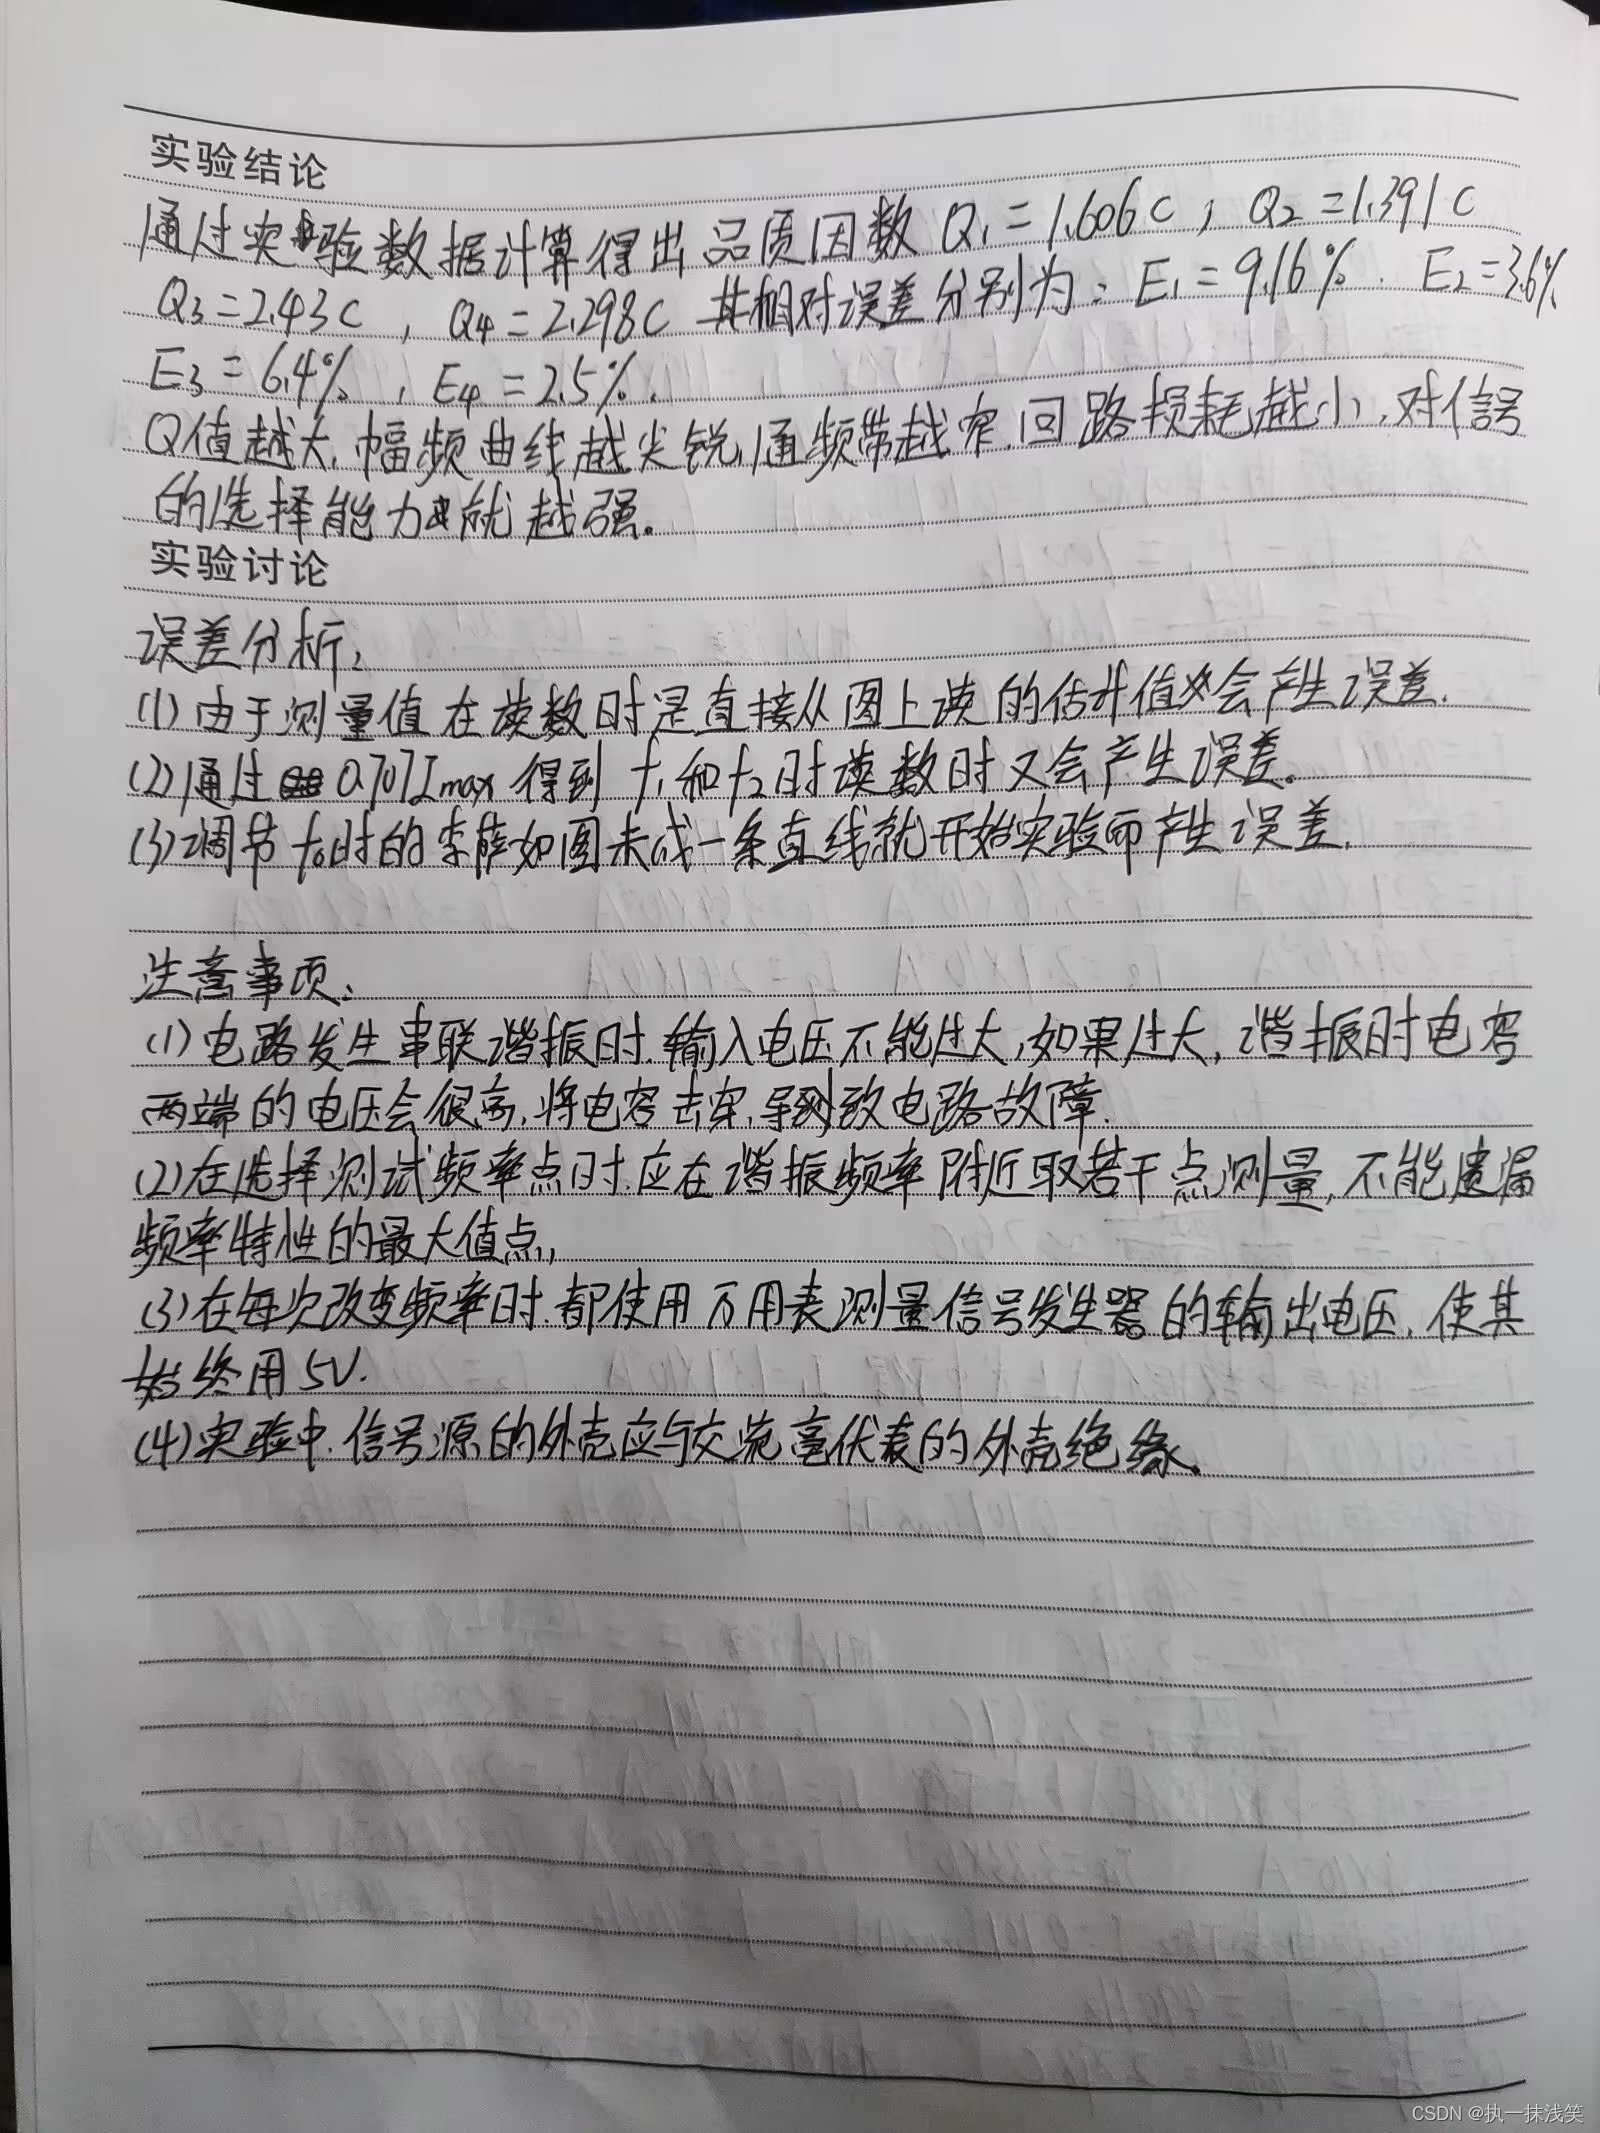 实验结论
通过实验数据计算得出品质因数 Q₁=1.606C, Q₂=1.391C
Q₃=2.43C, Q₄=2.298C 其相对误差分别为: E₁=9.16%. E₂=3.6%.
E₃=6.4%, E₄=2.5%.
Q值越大,幅频曲线越尖锐,通频带越窄.回路损耗越小,对信号
的选择能力就越强。
实验讨论
误差分析:
(1)由于测量值在读数时是直接从图上读的估计值会产生误差.
(2)通过0.707Imax得到f₁和f₂时读数时又会产生误差。
(3)调节f₀时的李萨如图未成一条直线就开始实验而产生误差.
注意事项:
(1)电路发生串联谐振时.输入电压不能过大,如果过大,谐振时电容
两端的电压会很高,将电容击穿,导致电路故障.
(2)在选择测试频率点时.应在谐振频率附近取若干点测量,不能遗漏
频率特性的最大值点,
(3)在每次改变频率时.都使用万用表测量信号发生器的输出电压,使其
始终用5V.
(4)实验中.信号源的外壳应与交流毫伏表的外壳绝缘、
CSDN @执一抹浅笑